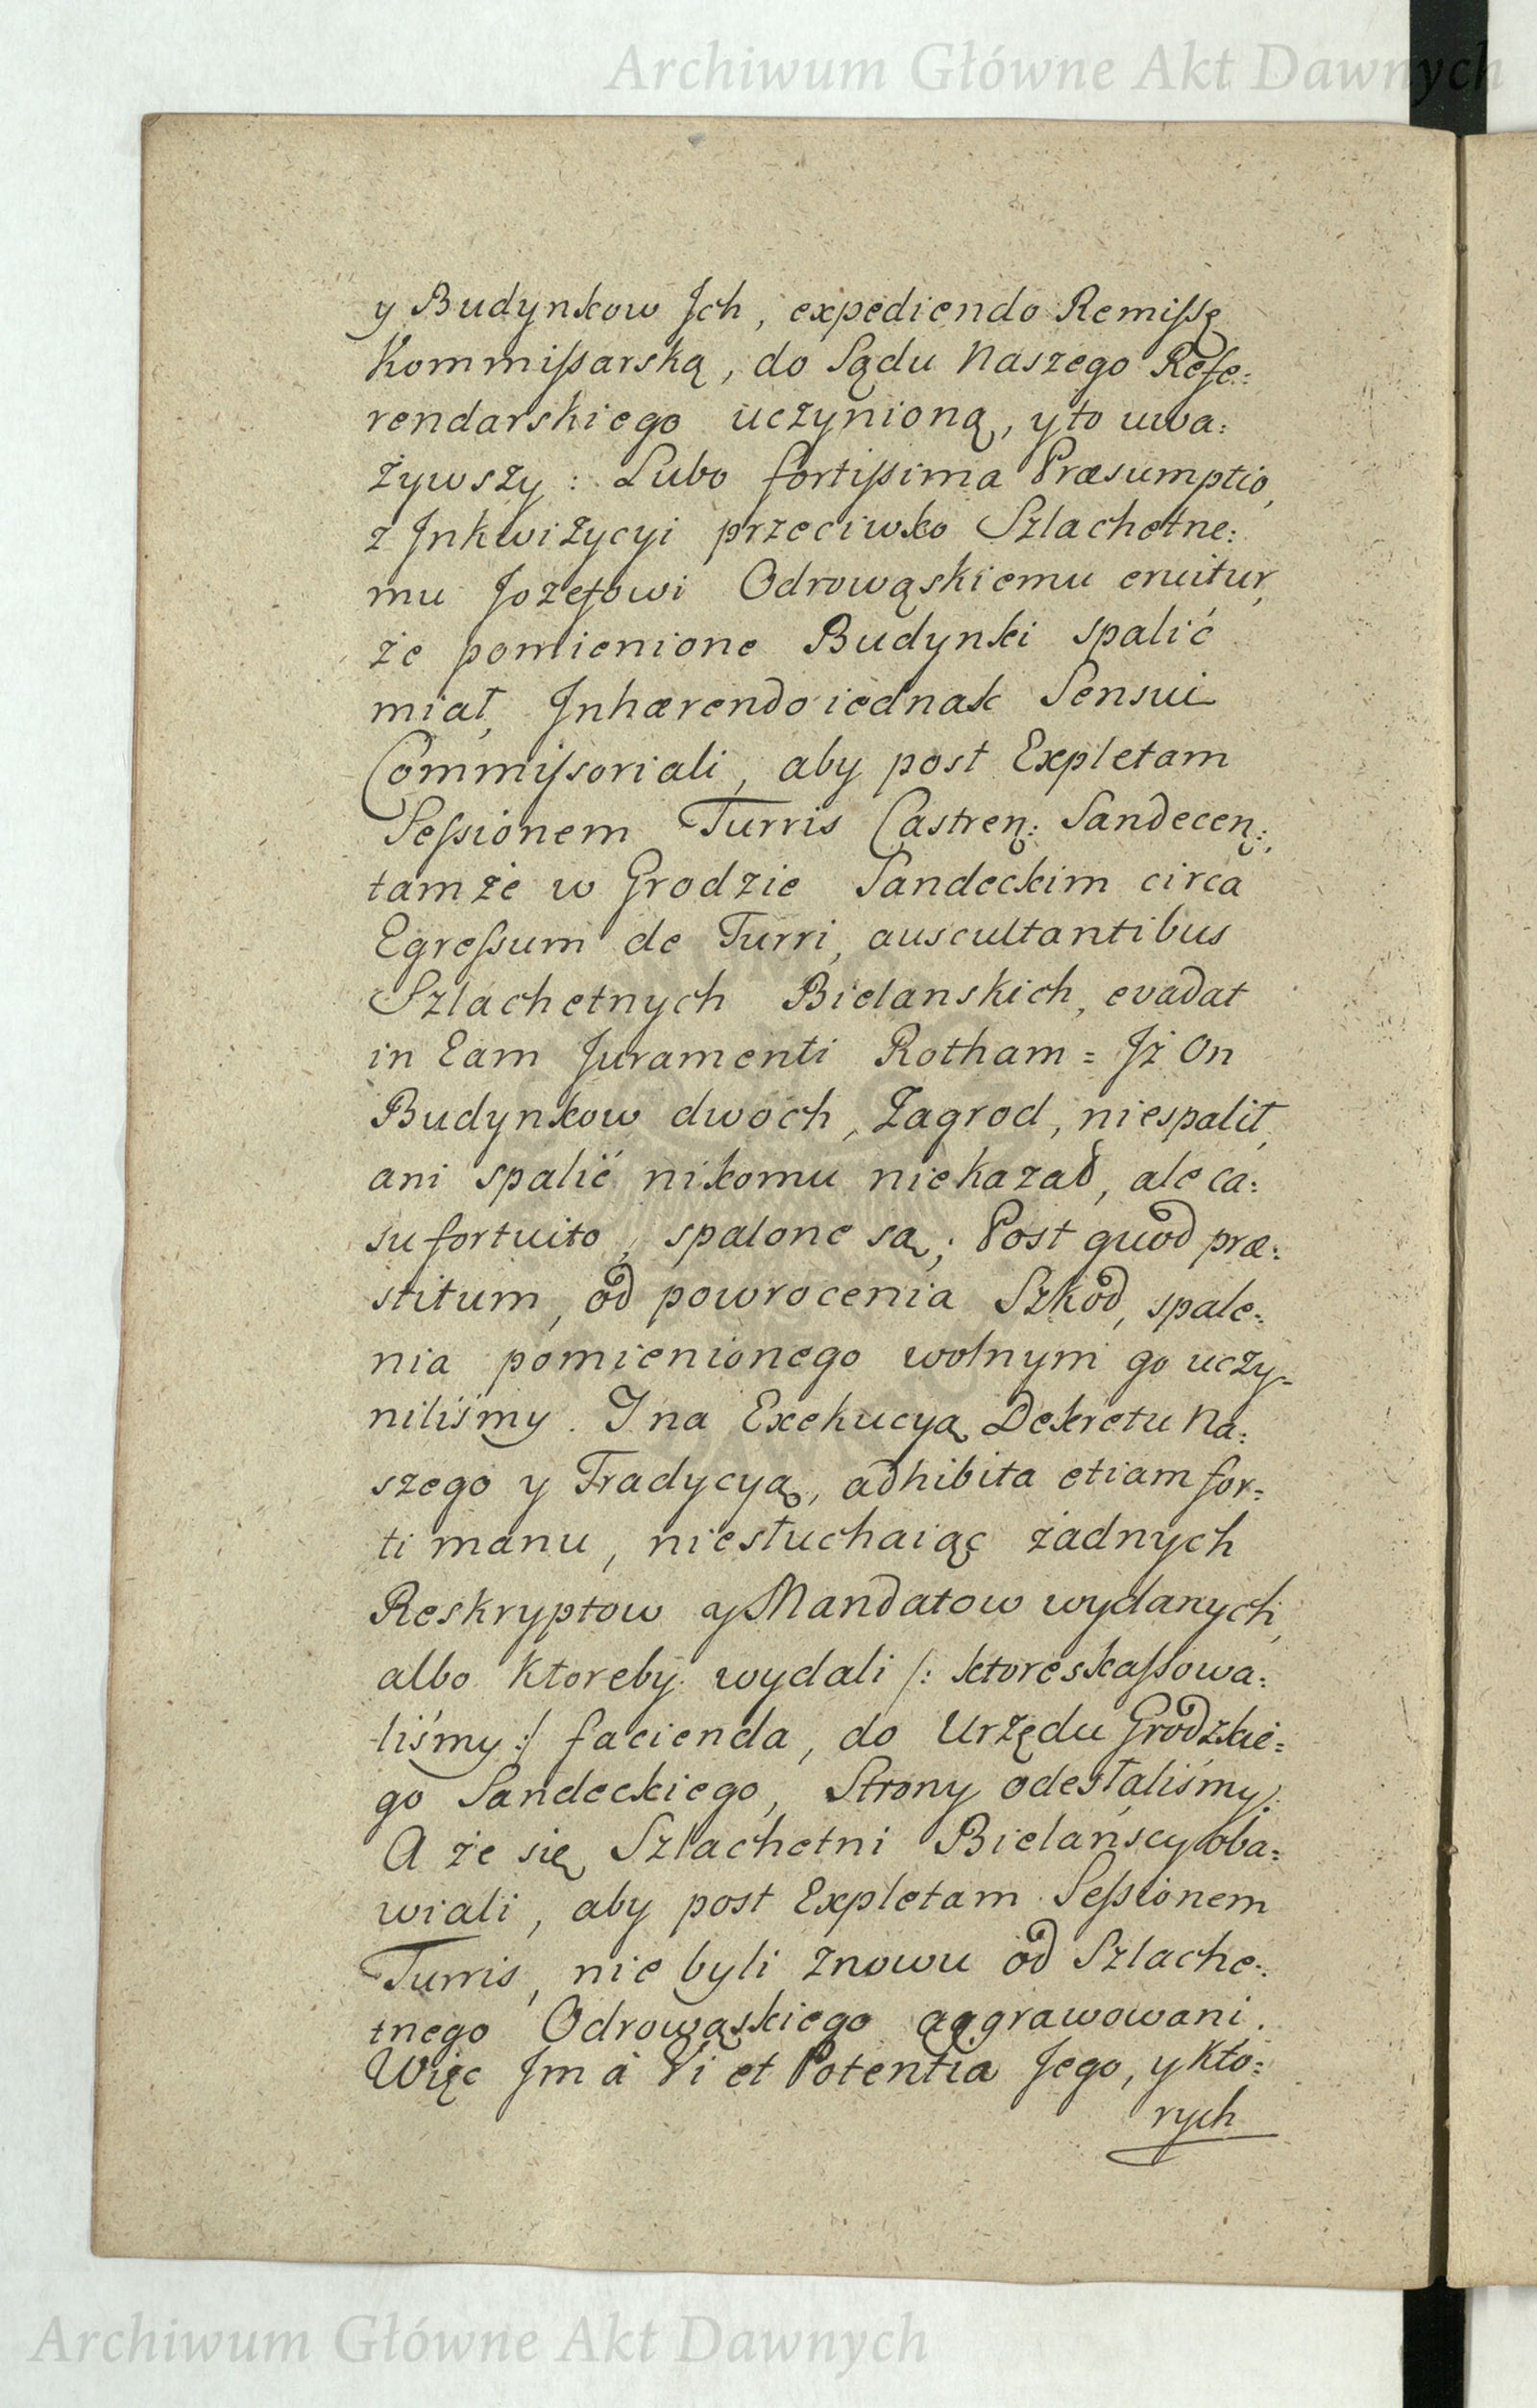 Archiwum Główne Akt Dawnych
y Budynkow Jch, expediendo Remiſsę
Kommiſsarską, do Sądu Naszego Refe:
rendarskiego uczynioną, y to uwa:
żywszy: Lubo fortiſsima Præsumptio,
z Jnkwizycyi przeciwko Szlachetne:
mu Jozefowi Odrowąskiemu eruitur,
że pomienione Budynki spalić
miał, Jnhærendo iednak Sensui
Commiſsoriali, aby post Expletam
Seſsionem Turris Castren: Sandecen:,
tamże w Grodzie Sandeckim circa
Egreſsum de Turri, auscultantibus
Szlachetnych Bielanskich, evadat
in Eam Juramenti Rotham = Jż On
Budynkow dwoch, Zagrod, niespalił,
ani spalić nikomu niekazał, ale ca:
su fortuito, spalone są; Post quod præ:
stitum, od powrocenia Szkod, spale:
nia pomienionego wolnym go uczy=
niliśmy. I na Exekucyą Dekretu Na:
szego y Tradycyą, adhibita etiam for=
ti manu, niesłuchaiąc żadnych
Reskryptow y Mandatow wydanych,
albo ktoreby wydali /: ktore skaſsowa:
liśmy :/ facienda, do Urzędu Grodzkie=
go Sandeckiego, Strony odesłaliśmy.
A że się Szlachetni Bielańscy oba=
wiali, aby post Expletam Seſsionem
Turris, nie byli znowu od Szlache:
tnego Odrowąskiego aggrawowani.
Więc Jm à Vi et Potentia Jego, y kto=
rych
Archiwum Główne Akt Dawnych